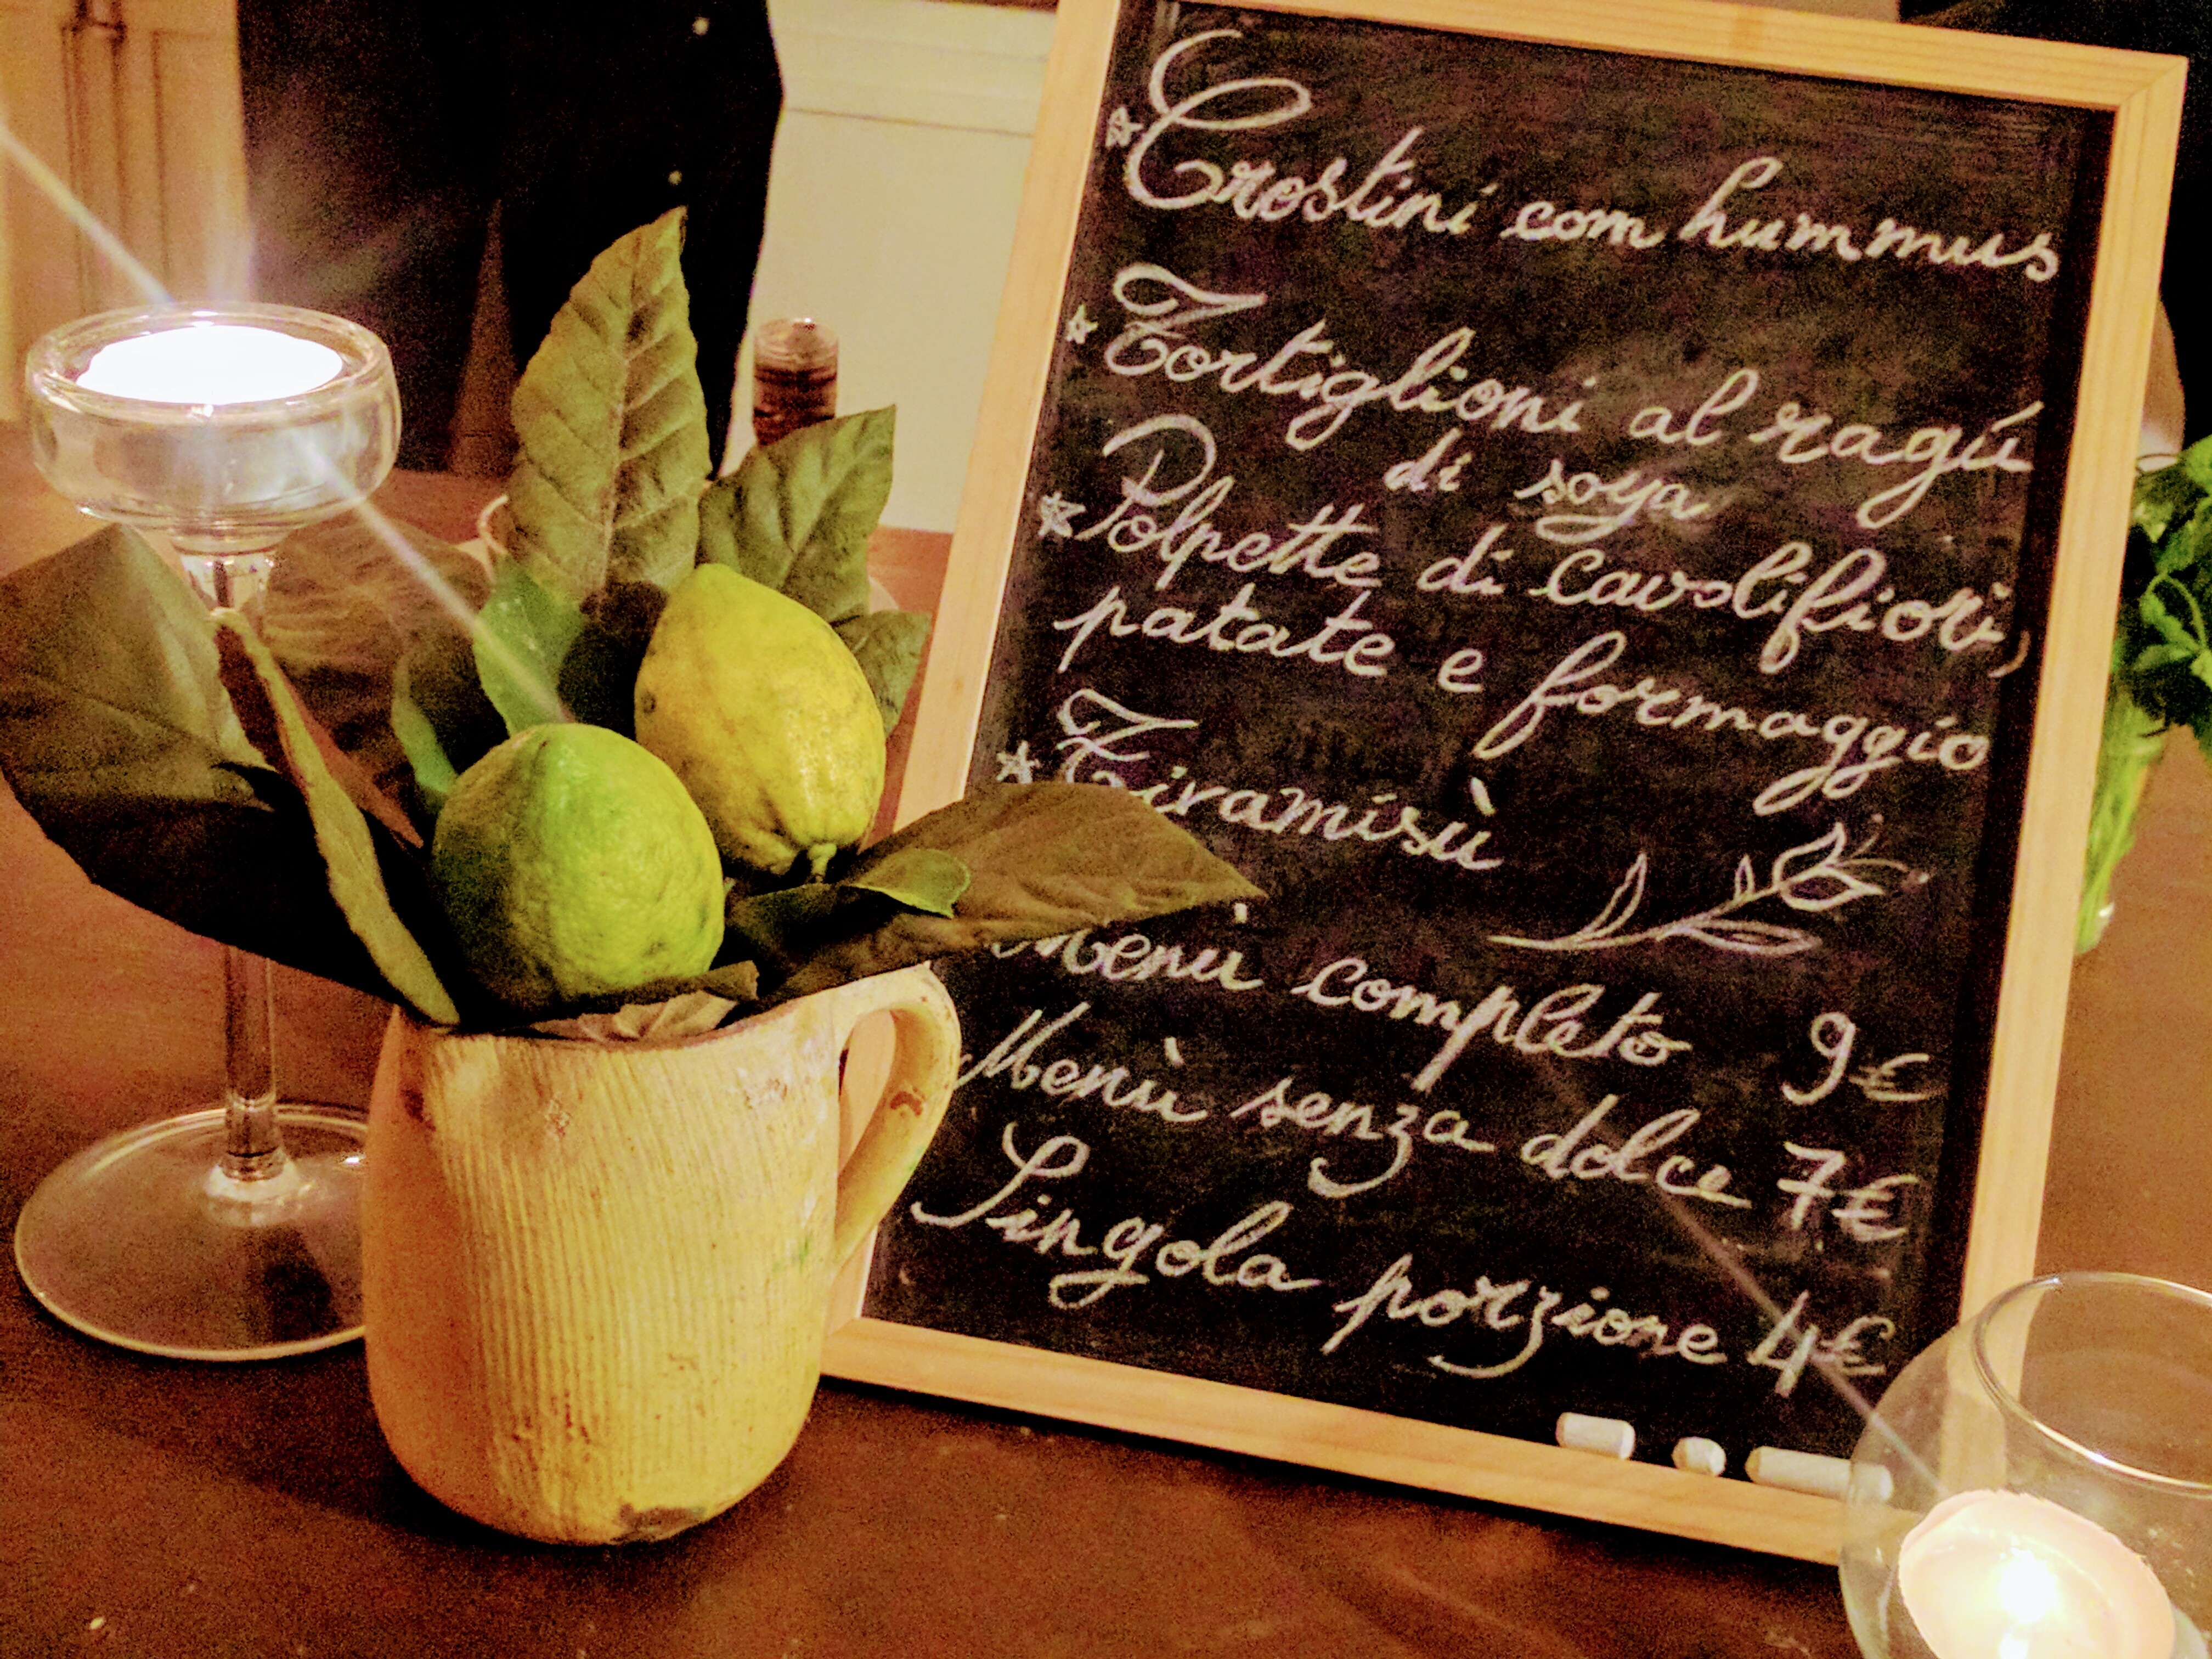 Crostini com hummus
Tortiglioni al ragú
di soya
Polpette di cavolifiori,
patate e formaggio
Tiramisù
Menù completo 9€
Menù senza dolce 7€
Singola porzione 4€